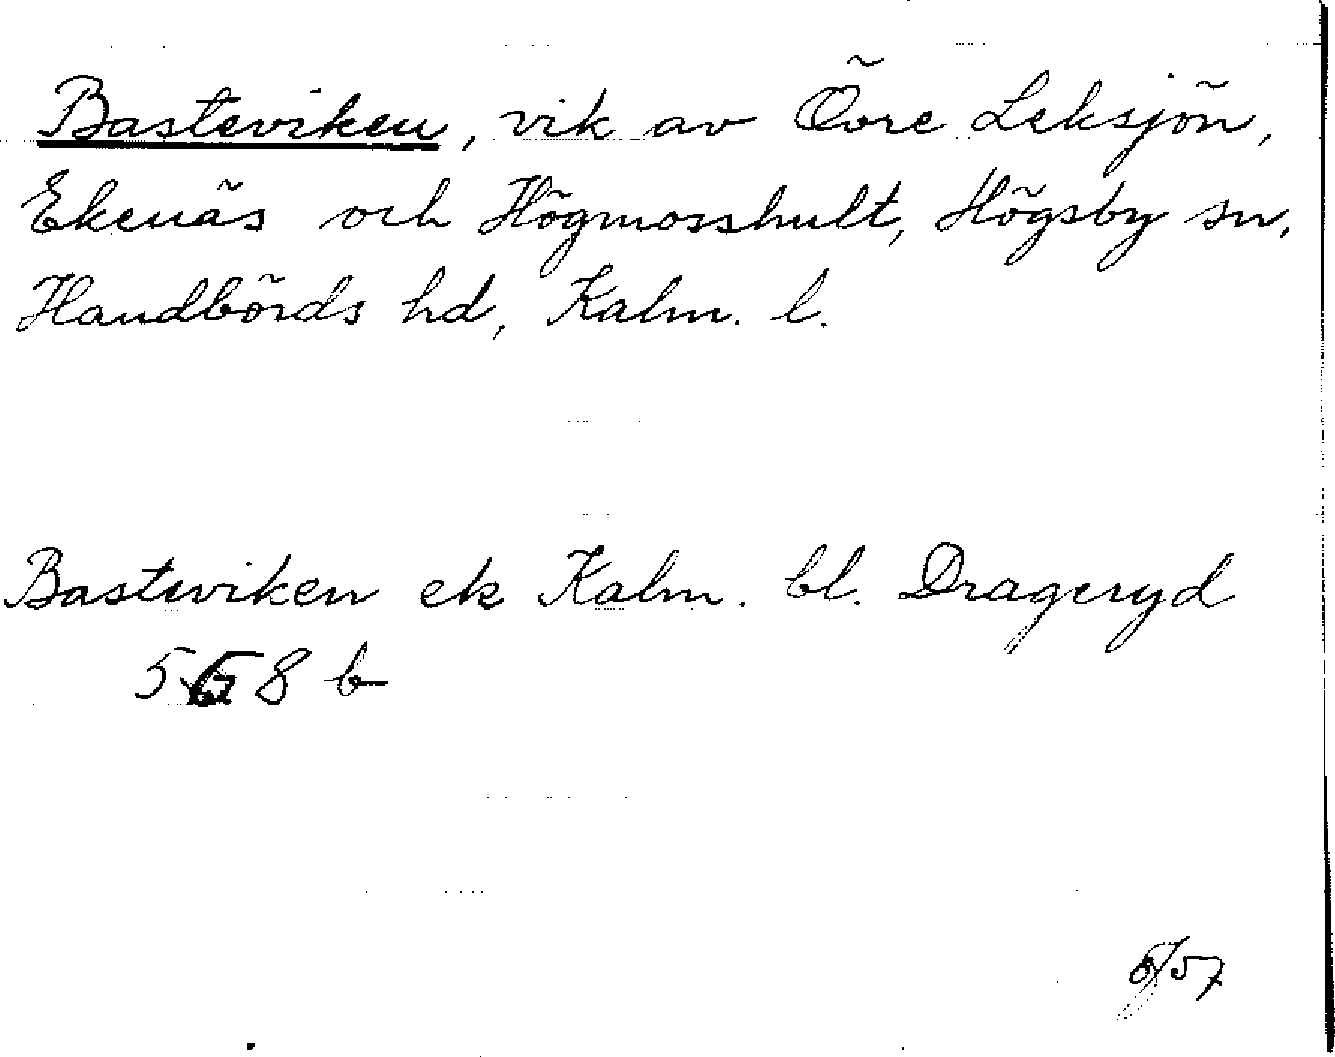 Basteviken, vik av Övre Leksjön,
Ekenäs och Högmosshult, Högsby sn,
Handbörds hd, Kalm. l.
Basteviken ek Kalm. bl. Drageryd
5 G 8 b
6/57